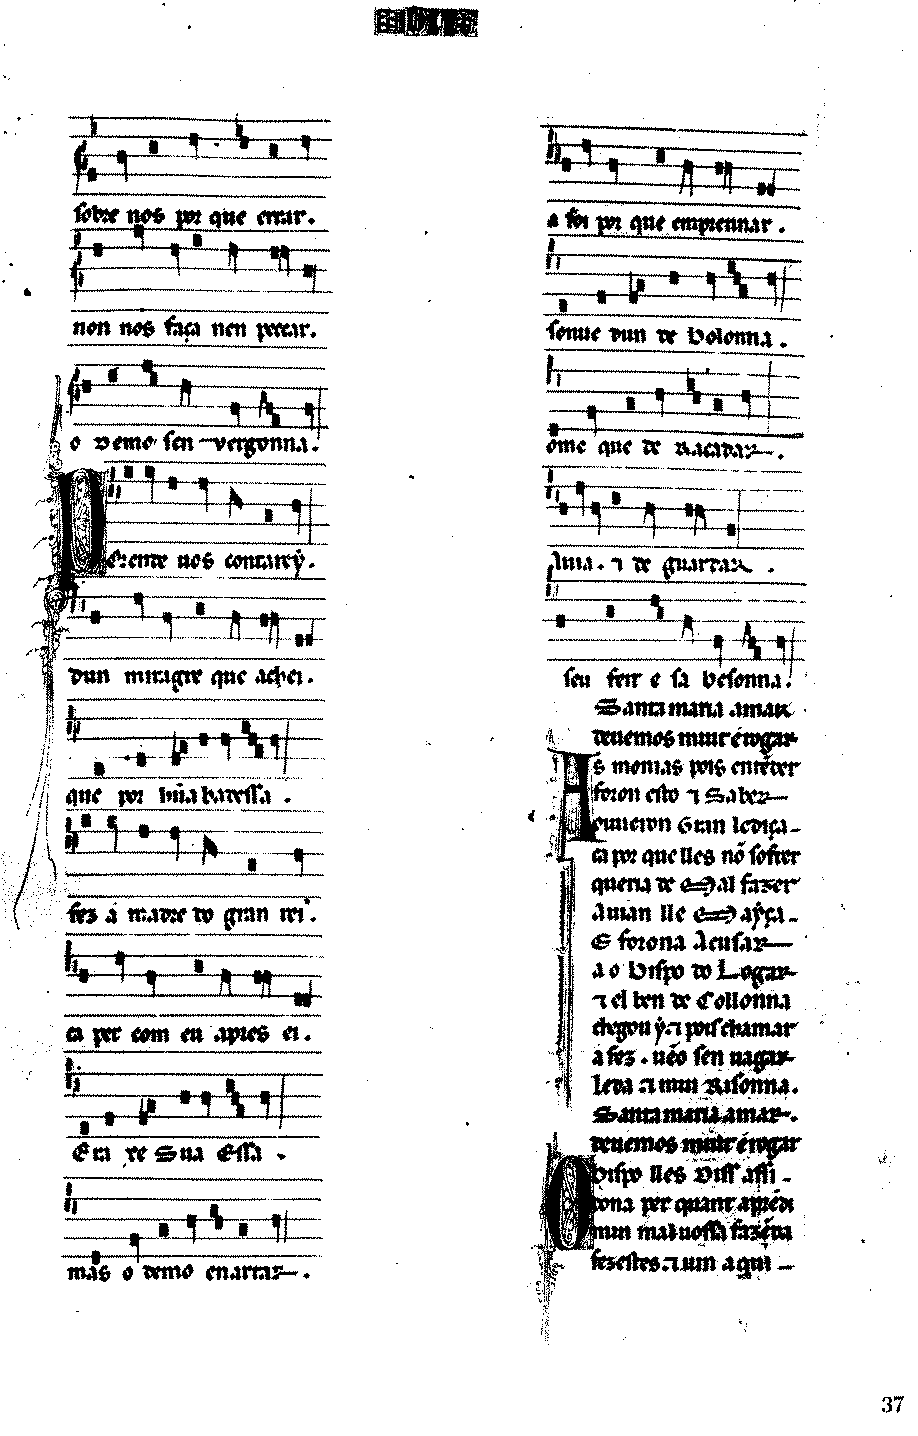 sobre nos por que errar.
non nos faça nen pecar.
o Demo sen vergonna.
Derente uos contarey̆.
dun miragre que achei.
que por hũa badessa.
fez a madre do gran rei.
ca per com eu apres ei.
Era xe Sua Essa.
mas o demo enartar.
a foi por que emprennar.
sonue dun de bolonna.
ome que de Racadar.
Auia. ⁊ de guardar.
seu feit e sa besonna.
Santa maria amar
deuemos muit ⁊ rogar
As monias pois entẽder
foron esto ⁊ Saber
ouueron Gran lediça
ca por que lles nõ sofrer
queria de Mal fazer
Auian lle Mayça
E forona Acusar
a o bispo do Logar
⁊ el ben de Collonna
chegou ý. ⁊ pois chamar
a fez. uẽo sen uagar
leda ⁊ mui Risonna.
Santa maria amar.
deuemos muit ⁊ rogar
O bispo lles diss assi
dona per quant aprẽdi
mui mal uossa fazẽda
fezestes. ⁊ uin aqui
37